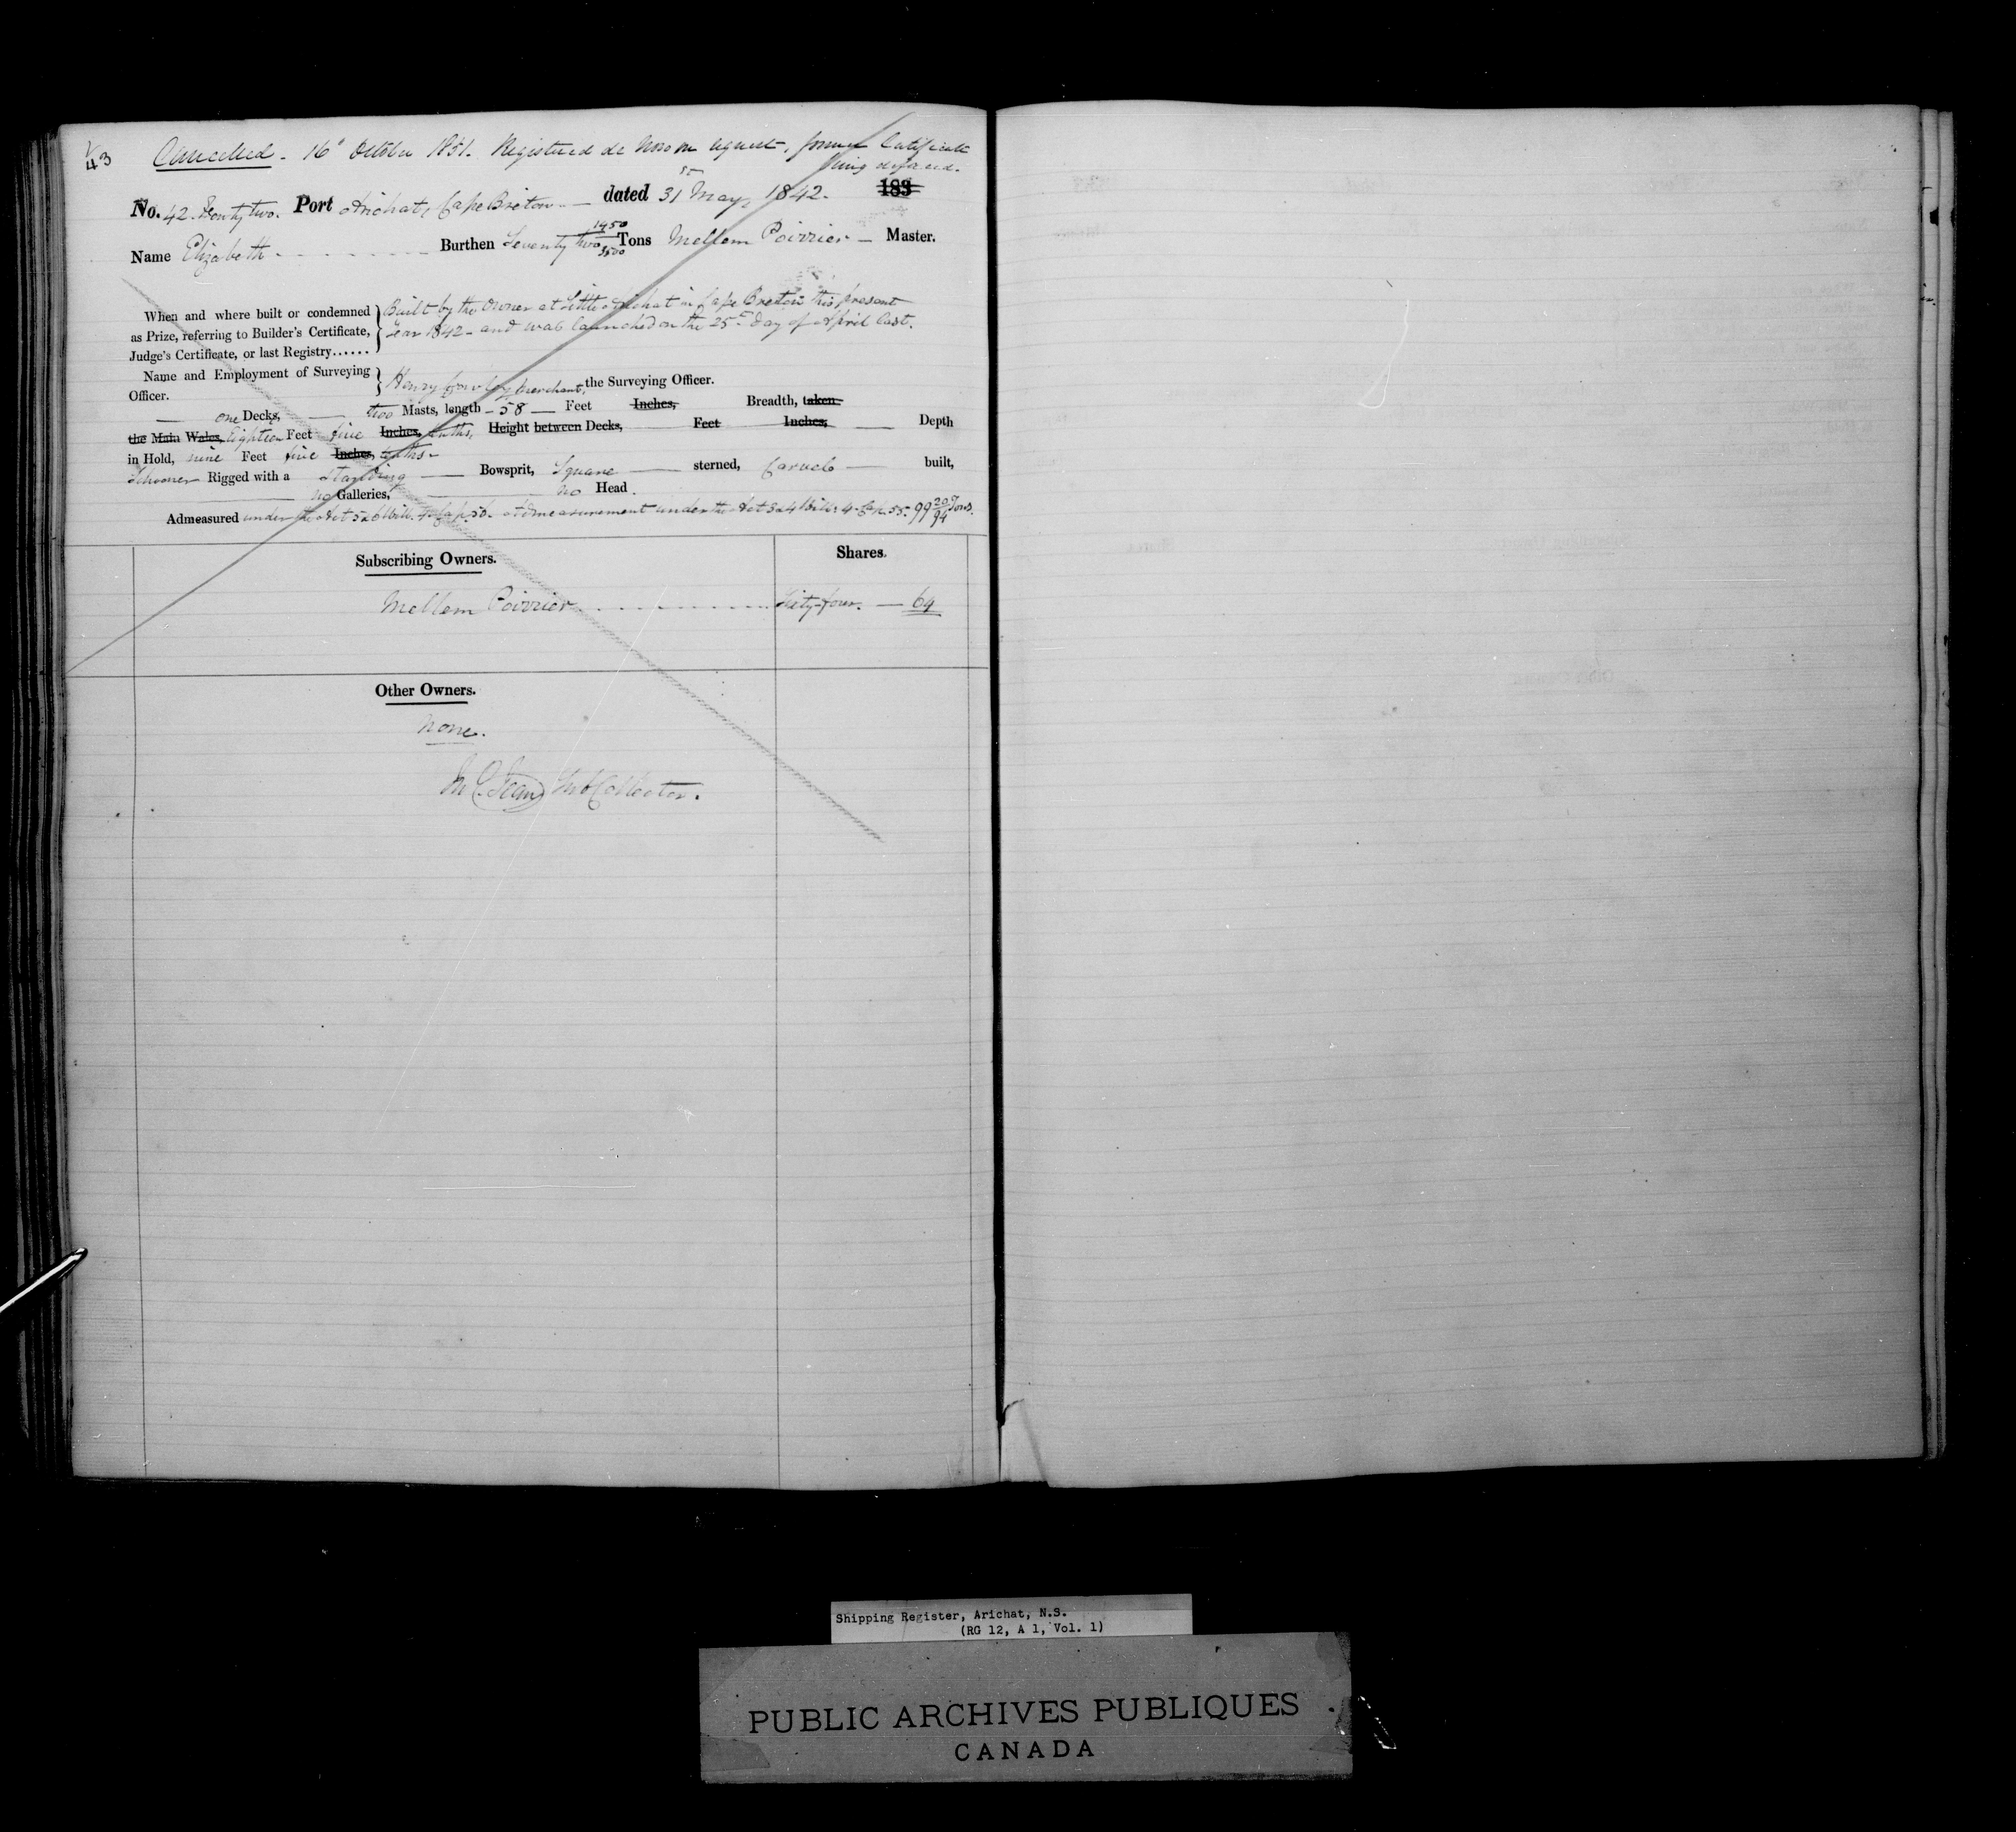 43
Cancelled - 16th October 1851. Registered de Novo an, former Certificate
being defaced.
No. 42. Forty two. Port Arichat, Cape Breton dated 31st May, 1842. 183
Name Elizabeth Burthen Seventy two 1950/3500 Tons Mellem Poirrier Master.
When and where built or condemned
as Prize, referring to Builder's Certificate,
Judge's Certificate, or last Registry......
Built by the Owner at Little Arichat in Cape Breton this present
Year 1842 - and was launched on the 25th day of April last.
Name and Employment of Surveying
Officer.
Henry merchant, the Surveying Officer.
one Decks, two Masts, length - 58 - Feet Inches, Breadth, taken
the Main Wales, Eighteen Feet five Inches, tenths, Height between Decks, Feet Inches, Depth
in Hold, nine Feet five Inches, tenths
Schooner Rigged with a Standing Bowsprit, Square sterned, Carvel built,
no Galleries, no Head.
Admeasured under the Act 5 & 6 Will. 4 Cap. 56. Admeasurement under the Act 3 & 4 Will: 4. Cap. 55. 99 20/94 Tons.
Subscribing Owners. Shares.
Mellem Poirrier Sixty-four. — 64
Other Owners.
None.
Jean Sub Collector.
Shipping Register, Arichat, N.S.
(RG 12, A 1, Vol. 1)
PUBLIC ARCHIVES PUBLIQUES
CANADA